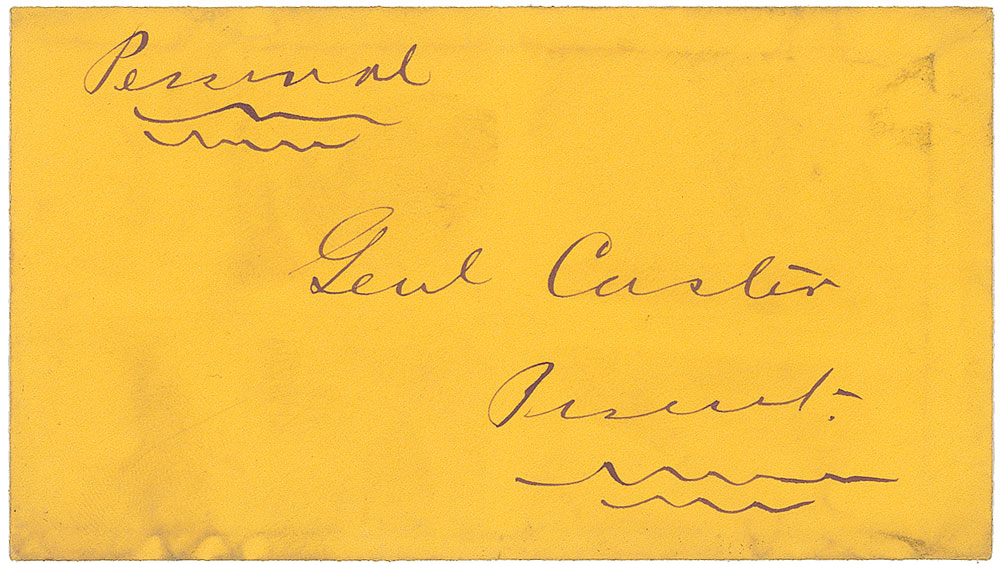 Personal
Genl Custer
Present.